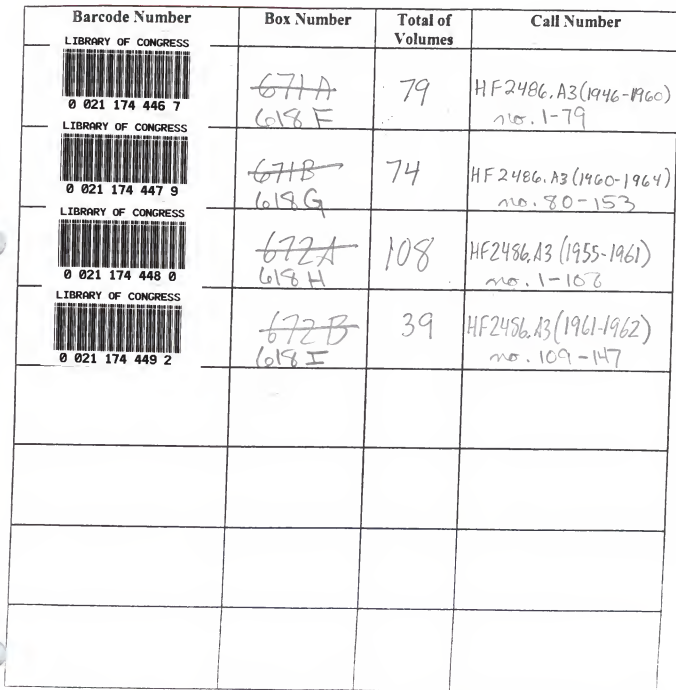 Barcode Number Box Number Total of Volumes Call Number
LIBRARY OF CONGRESS
0 021 174 446 7
671A
618F
79
HF2486.A3(1946-1960)
no. 1-79
LIBRARY OF CONGRESS
0 021 174 447 9
671B
618G
74
HF2486.A3(1960-1964)
no. 80-153
LIBRARY OF CONGRESS
0 021 174 448 0
672A
618H
108
HF2486.A3(1955-1961)
no. 1-108
LIBRARY OF CONGRESS
0 021 174 449 2
672B
618I
39
HF2486.A3(1961-1962)
no. 109-147